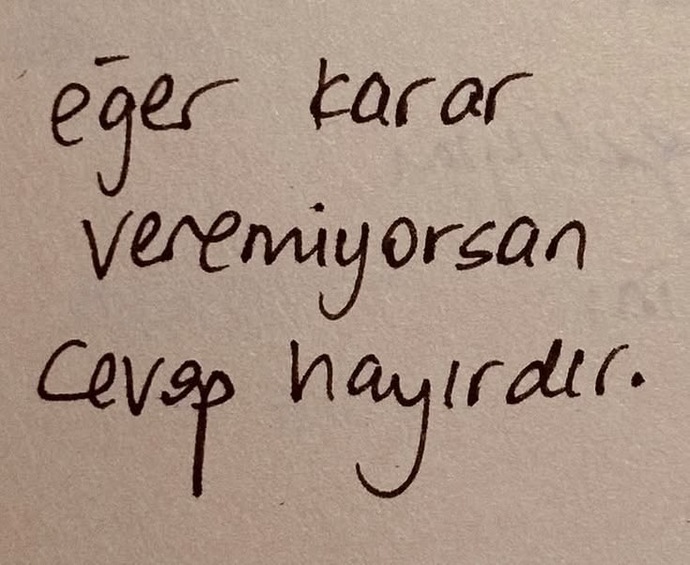 eğer karar
veremiyorsan
Cevap hayırdır.